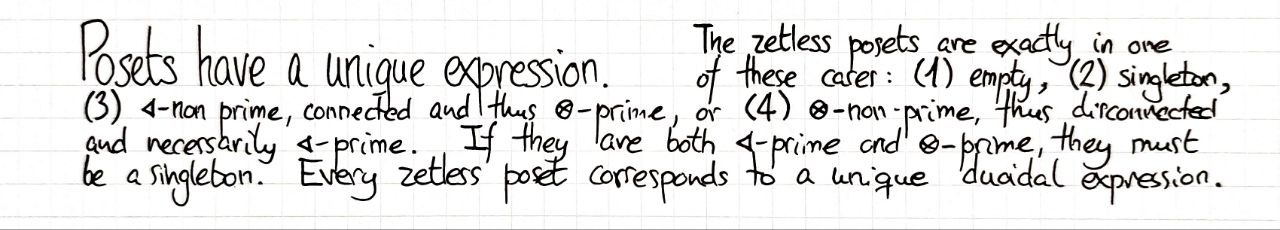 Posets have a unique expression. The zetless posets are exactly in one
of these cases: (1) empty, (2) singleton,
(3) ◁-non prime, connected and thus ⊗-prime, or (4) ⊗-non-prime, thus disconnected
and necessarily ◁-prime. If they are both ◁-prime and ⊗-prime, they must
be a singleton. Every zetless poset corresponds to a unique duoidal expression.